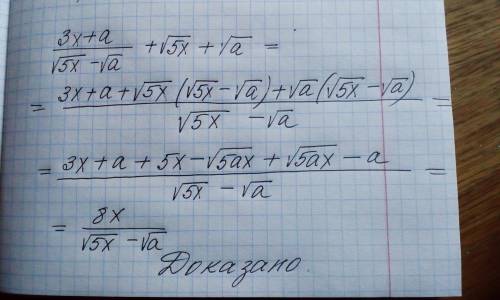 (3x+a)/(√5x −√a) +√5x + √a =
= (3x+a+√5x(√5x −√a)+√a(√5x −√a))/(√5x −√a) =
= (3x+a + 5x −√5ax + √5ax − a)/(√5x −√a) =
= 8x/(√5x −√a)
Доказано.